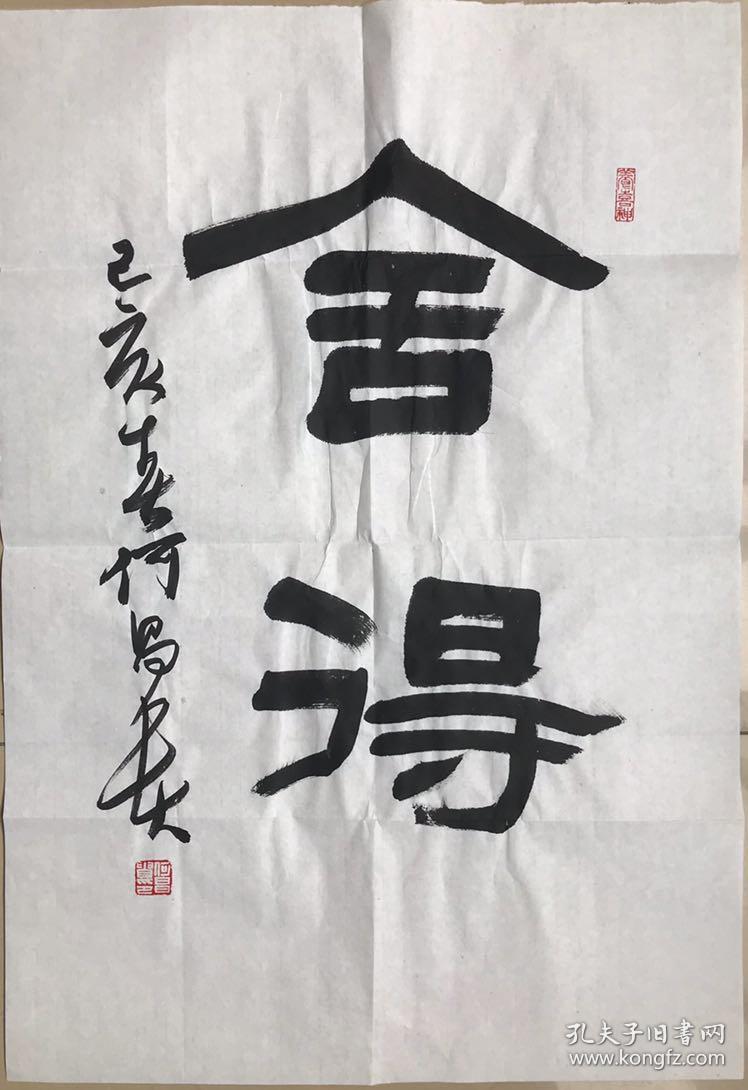 舍得
己亥春何昌贵
孔夫子旧书网
www.kongfz.com